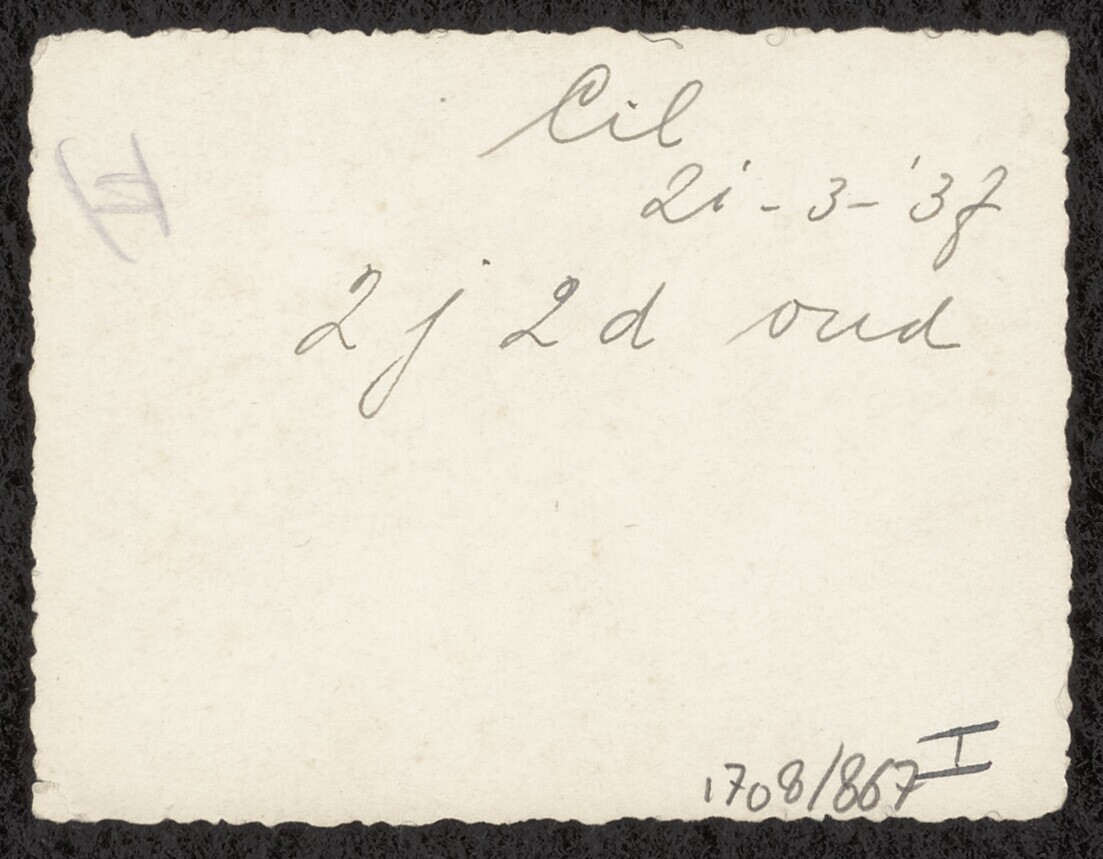 Cil
21-3-'37
2j 2d oud
1708/867 I